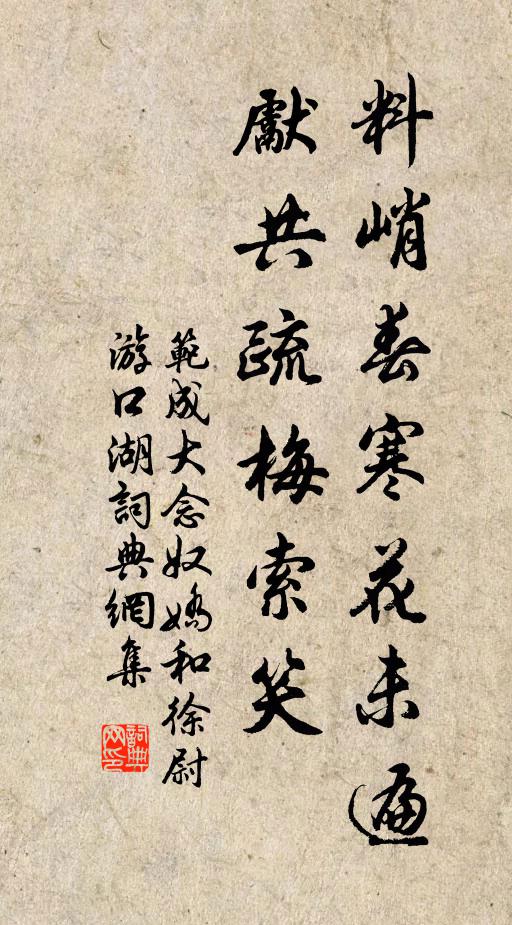 料峭春寒花未遍
獻共疏梅索笑
範成大念奴嬌和徐尉
游口湖詞典網集
詞典
网印